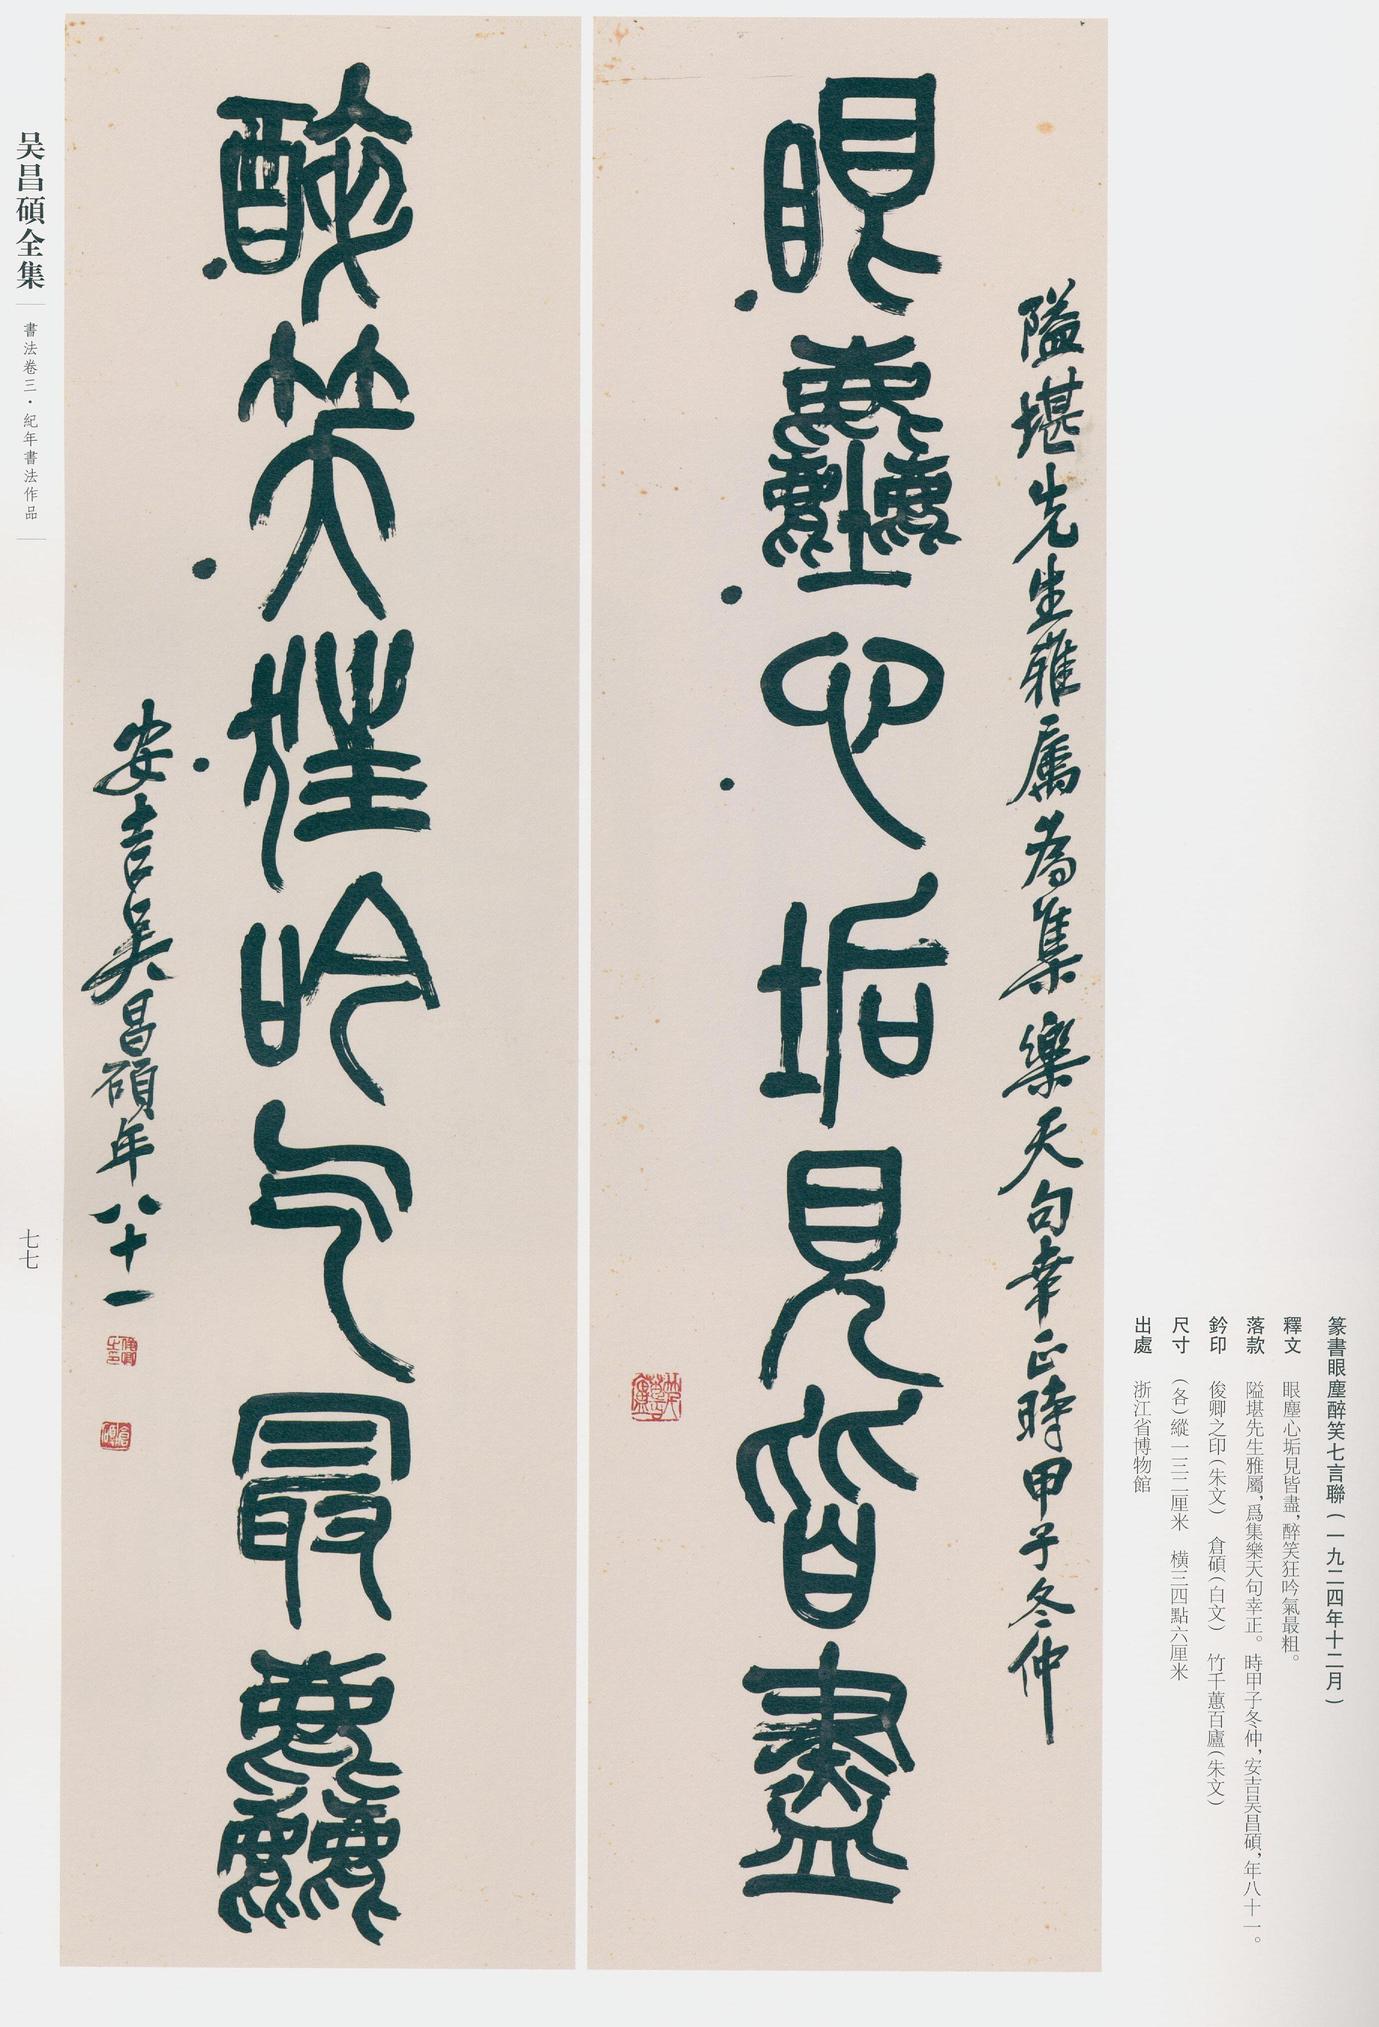 篆書眼塵醉笑七言聯(一九二四年十二月)
釋文 眼塵心垢見皆盡,醉笑狂吟氣最粗。
落款 隘堪先生雅屬,爲集樂天句幸正。時甲子冬仲,安吉吴昌碩,年八十一。
鈐印 俊卿之印(朱文) 倉碩(白文) 竹千蕙百廬(朱文)
尺寸 (各)縱一三二厘米 橫三四點六厘米
出處 浙江省博物館
隘堪先生雅屬為集樂天句幸正時甲子冬仲
眼塵心垢見皆盡
竹千蕙百廬
醉笑狂吟气最麤
安吉吴昌碩年八十一
俊卿之印
倉碩
吴昌碩全集
書法卷三·紀年書法作品
七七